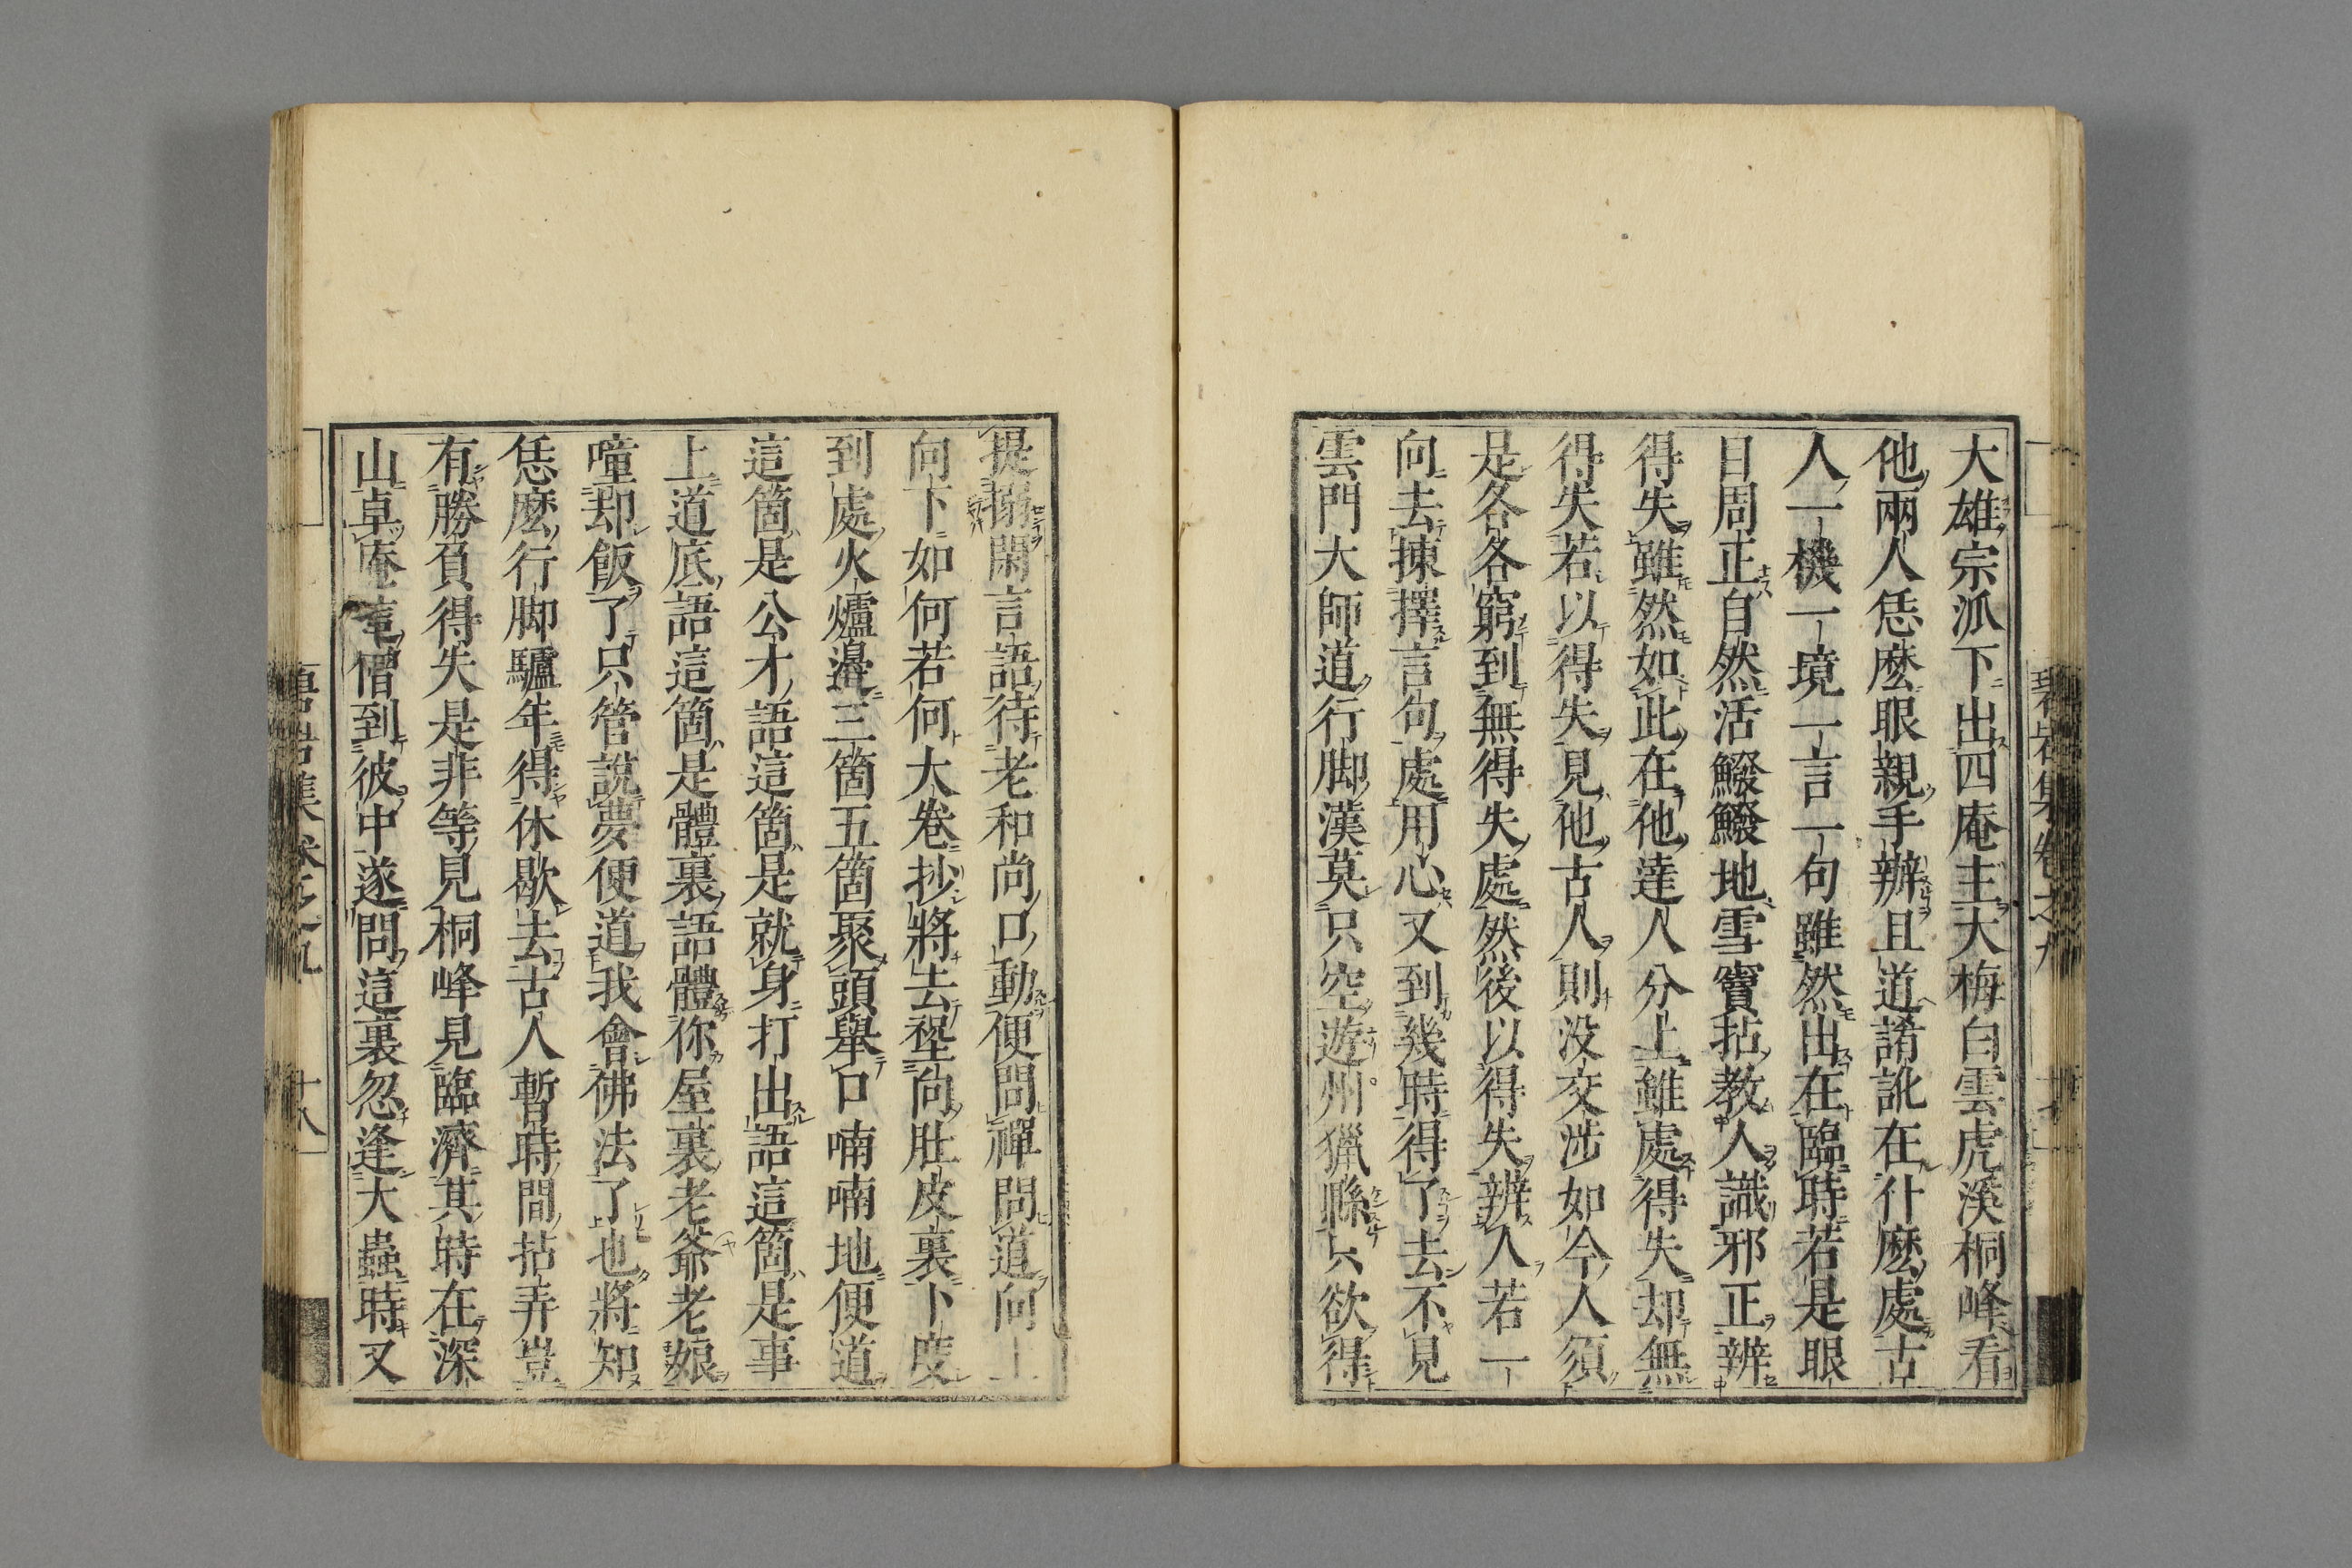 大雄宗派下出四庵主大梅白雲虎溪桐峰看
他兩人恁麽眼親手辦且道誵訛在什麽處古
人一機一境一言一句雖然出在臨時若是眼
目周正自然活鱍鱍地雪竇拈教人識邪正辨
得失雖然如此在他達人分上雖處得失却無
得失若以得失見他古人則没交涉如今人須
是各各窮到無得失處然後以得失辨人若一
向去揀擇言句處用心又到幾時得了去不見
雲門大師道行脚漢莫只空遊州猟縣只欲得
提搦閑言語待老和尚口動便問禪問道向上
向下如何若何大卷抄將去㙮向肚皮裏卜度
到處火爐邊三箇五箇聚頭舉口喃喃地便道
這箇是公才語這箇是就身打出語這箇是事
上道底語這箇是體裏語體你屋裏老爺老娘
噇却飯了只管說夢便道我會佛法了也將知
恁麽行脚驢年得休歇去古人暫時間拈弄豈
有勝負得失是非等見桐峰見臨濟其時在深
山卓庵這僧到彼中遂問這裏忽逢大蟲時又
碧岩集卷之九